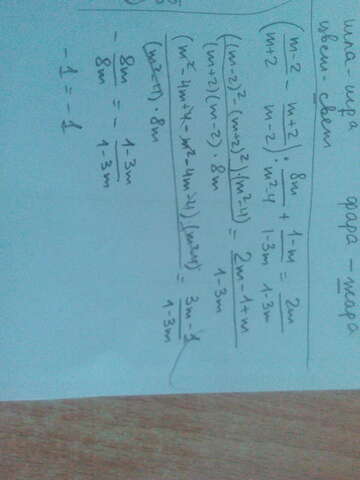 шла - игра    фара - жара
цвет - свет
(m-2/m+2 - m+2/m-2) : 8m/m²-4 + 1-m/1-3m = 2m/1-3m
((m-2)²-(m+2)²)·(m²-4)/(m+2)(m-2)·8m = 2m-1+m/1-3m
(m²-4m+4-m²-4m-4)·(m²-4)/(m²-4)·8m = 3m-1/1-3m
- 8m/8m = - 1-3m/1-3m
-1 = -1